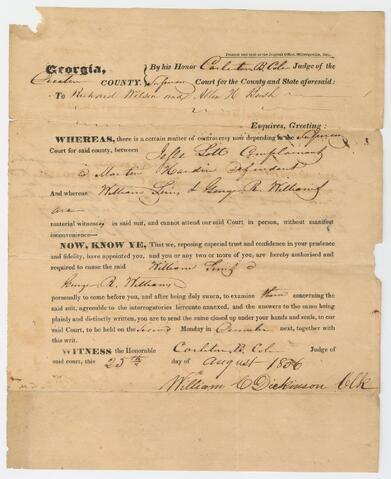 Printed and sold at the Journal Office, Milledgeville, Geo.
Georgia, By his Honor Carleton B Cole Judge of the
COUNTY. Superior Court for the County and State aforesaid:
To Richard Wilson and Allen H
Esquires, Greeting:
WHEREAS, there is a certain matter of controversy now depending in the Superior
Court for said county, between Jesse Complainant
& Martin Hardin Defendant
And whereas William & George R. Williams
are
material witnesses in said suit, and cannot attend our said Court in person, without manifest
inconvenience—
NOW, KNOW YE, That we, reposing especial trust and confidence in your prudence
and fidelity, have appointed you, and you or any two or more of you, are hereby authorised and
required to cause the said William &
George R. Williams
personally to come before you, and after being duly sworn, to examine them concerning the
said suit, agreeable to the interrogatories hereunto annexed, and the answers to the same being
plainly and distinctly written, you are to send the same closed up under your hands and seals, to our
said Court, to be held on the second Monday in December next, together with
this writ.
WITNESS the Honorable Carleton B. Cole Judge of
said court, this 25th day of August 1836
William C Dickinson Clk